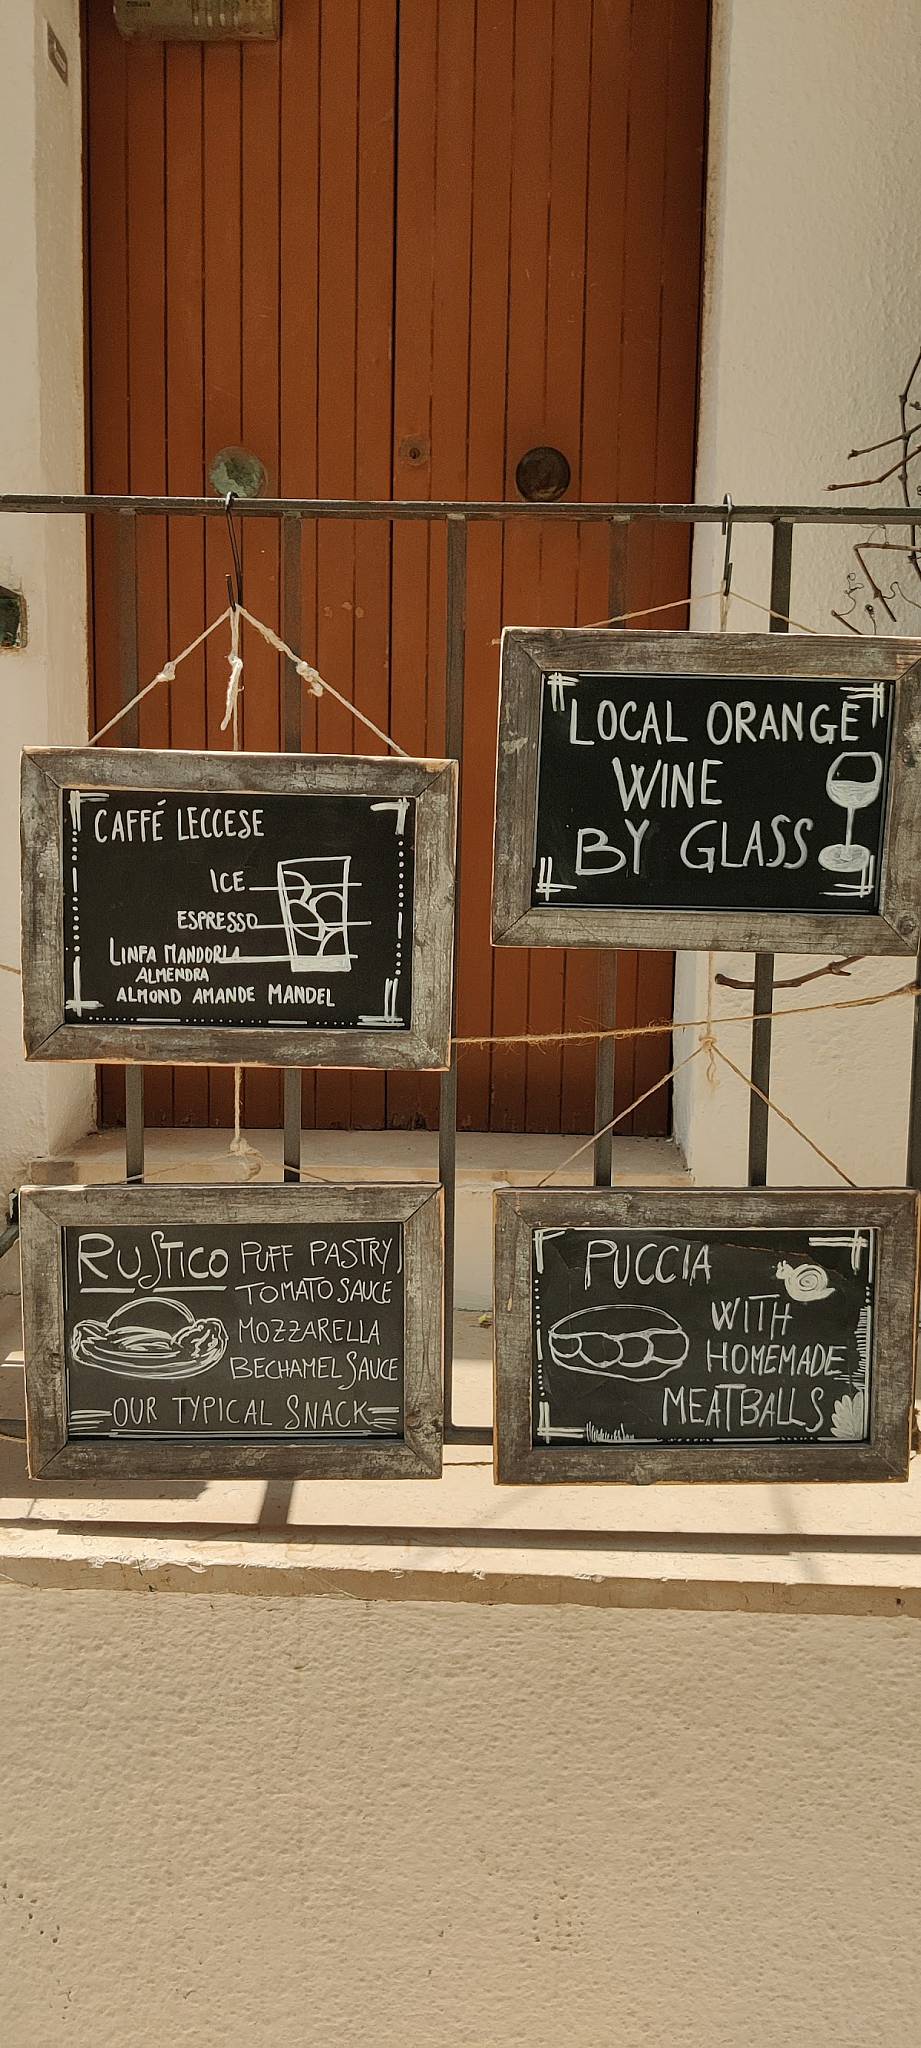 CAFFÉ LECCESE
ICE
ESPRESSO
LINFA MANDORLA
ALMENDRA
ALMOND AMANDE MANDEL
LOCAL ORANGE
WINE
BY GLASS
RUSTICO PUFF PASTRY,
TOMATO SAUCE
MOZZARELLA
BECHAMEL SAUCE
OUR TYPICAL SNACK
PUCCIA
WITH
HOMEMADE
MEATBALLS